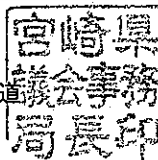 宮崎県
道
議会事務
局長印